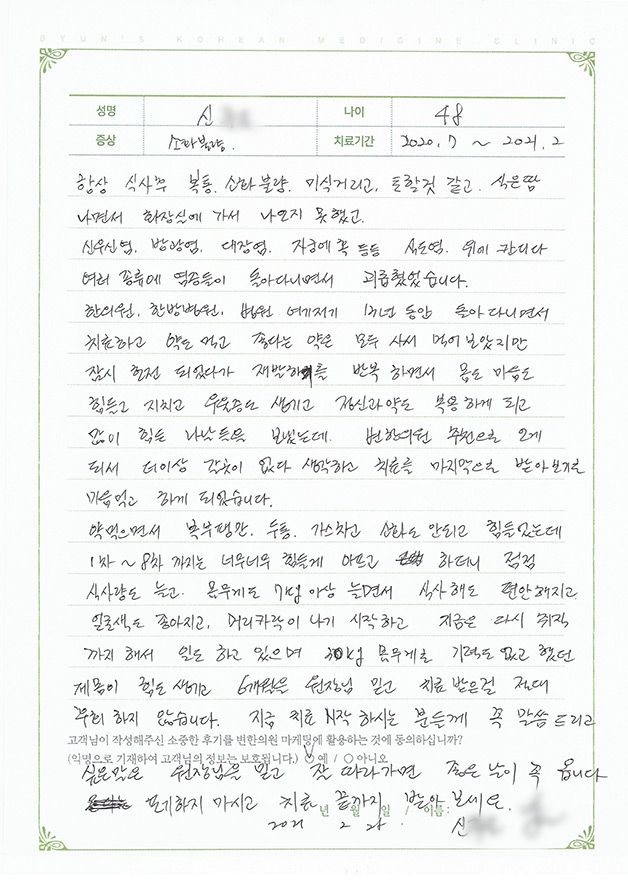 BYUN'S KOREAN MEDICINE CLINIC
성명 신 나이 48
증상 소화불량. 치료기간 2020. 7 ~ 2021. 2
항상 식사후 복통, 소화불량, 미식거리고, 토할것 같고, 식은땀
나면서 화장실에 가서 나오지 못했고.
신우신염, 방광염, 대장염, 자궁에 혹 등등 식도염, 위에 칸디다
여러 종류에 염증들이 돌아다니면서 괴롭혔었습니다.
한의원, 한방병원, 병원 여기저기 동안 돌아다니면서
치료하고 약도 먹고 좋다는 약은 모두 사서 먹어 보았지만
잠시 호전 되었다가 재발하기를 반복 하면서 몸도 마음도
힘들고 지치고 우울증도 생기고 정신과약도 복용하게 되고
많이 힘든 나날들을 보냈는데. 변한의원 추천으로 오게
되서 더이상 갈곳이 없다 생각하고 치료를 마지막으로 받아보기로
마음먹고 하게 되었습니다.
약먹으면서 복부팽만, 두통, 가스차고 소화도 안되고 힘들었는데
1차 ~ 8차 까지는 너무너무 힘들게 아프고 하더니 점점
식사량도 늘고. 몸무게도 7kg 이상 늘면서 식사해도 편안해지고
얼굴색도 좋아지고, 머리카락이 나기 시작하고 지금은 다시 취직
까지 해서 일도 하고 있으며 30kg 몸무게로 기력도 없고 했던
제몸이 힘도 생기고 6개월은 원장님 믿고 치료 받은걸 절대
후회 하지 않습니다. 지금 치료 시작 하시는 분들께 꼭 말씀 드리고
고객님이 작성해주신 소중한 후기를 변한의원 마케팅에 활용하는 것에 동의하십니까?
(익명으로 기재하여 고객님의 정보는 보호됩니다.) ✓○ 예 / ○ 아니오
싶은말은 원장님을 믿고 잘 따라가면 좋은 날이 꼭 옵니다
포기하지 마시고 치료 끝까지 받아 보세요.
2021 년 2 월 26 일 / 이름 : 신